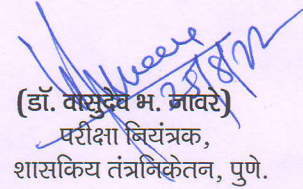 (डॉ. वासुदेव भ. नावरे)
परीक्षा नियंत्रक,
शासकिय तंत्रनिकेतन, पुणे.